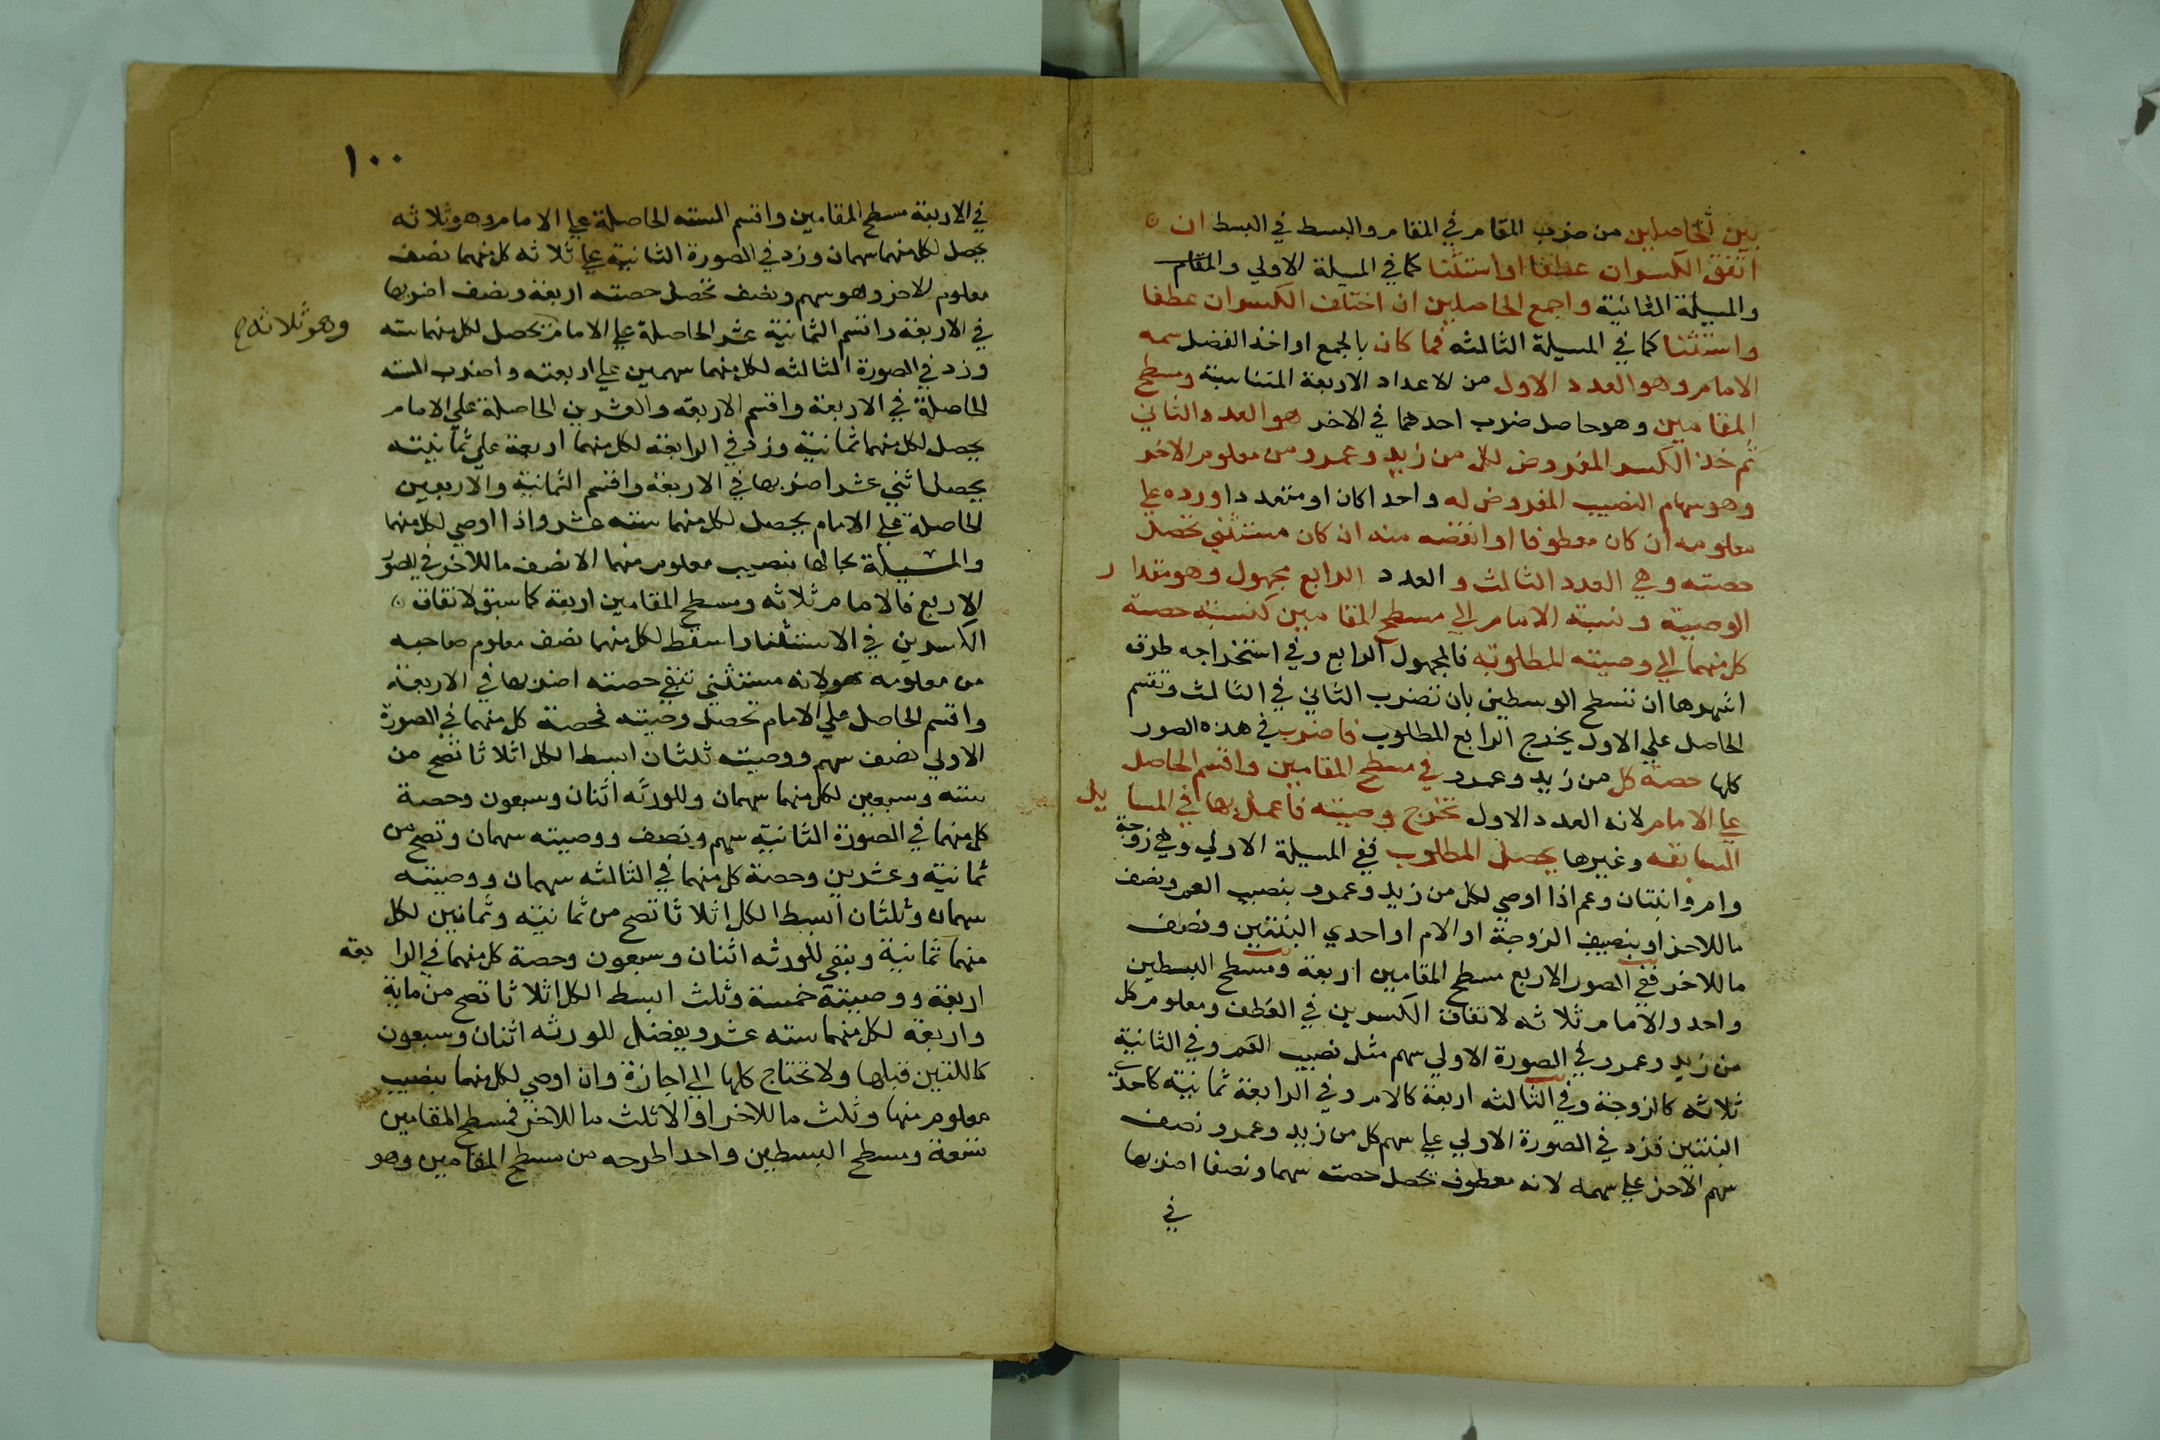 بين الحاصلين من ضرب المقام في المقام والبسط في البسط ان
اتفق الكسران عطفا او استثنا كما في المسيلة الاولي والمقام
والمسيلة الثانية واجمع الحاصلين ان اختلف الكسران عطفا
واستثنا كما في المسيلة الثالثه فما كان بالجمع او اخذ الفضل سمه
الامام وهو العدد الاول من الاعداد الاربعة المتناسبة ومسطح
المقامين وهو حاصل ضرب احدهما في الاخر هو العدد الثاني
ثم خذ الكسر المفروض لكل من زيد وعمرو من معلوم الاخر
وهو سهام النصيب المفروض له واحدا كان او متعددا ورده علي
معلومه ان كان معطوفا او انقصه منه ان كان مستثني تحصل
حصته وهي العدد الثالث والعدد الرابع مجهول وهو مقدار
الوصية ونسبة الامام الي مسطح المقامين كنسبة حصة
كل منهما الي وصيته المطلوبة فالمجهول الرابع وفي استخراجه طرق
اشهرها ان تسطح الوسطين بان تضرب الثاني في الثالث وتقسم
الحاصل علي الاول يخرج الرابع المطلوب فاضرب في هذه الصور
كلها حصة كل من زيد وعمرو في مسطح المقامين واقسم الحاصل
علي الامام لانه العدد الاول تخرج وصيته فاعمل بها في المسايل
السابقه وغيرها يحصل المطلوب ففي المسيلة الاولي وهي زوجة
وام وابنتان وعم اذا اوصي لكل من زيد وعمرو بنصيب العم ونصف
ما للاخر او بنصيب الزوجة او الام او احدي البنتين ونصف
ما للاخر ففي الصور الاربع مسطح المقامين اربعة ومسطح البسطين
واحد والامام ثلاثه لاتفاق الكسرين في العطف ومعلوم كل
من زيد وعمرو في الصورة الاولي سهم مثل نصيب العم وفي الثانية
ثلاثه كالزوجة وفي الثالثه اربعة كالام وفي الرابعة ثمانية كاحدي
البنتين فزد في الصورة الاولي علي سهم كل من زيد وعمرو نصف
سهم الاخر علي سهمه لانه معطوف تحصل حصته سهما ونصفا اضربها
في
١٠٠
في الاربعة مسطح المقامين واقسم الستة الحاصلة علي الامام وهو ثلاثه
يحصل لكل منهما سهمان وزد في الصورة الثانية علي ثلاثه كل منهما نصف
معلوم الاخر وهو سهم ونصف تحصل حصته اربعة ونصف اضربها
في الاربعة واقسم الثمانية عشر الحاصلة علي الامام تحصل لكل منهما ستة
وهو ثلاثه
وزد في الصورة الثالثه لكل منهما سهمين علي اربعته واضرب الستة
الحاصلة في الاربعة واقسم الاربعة والعشرين الحاصلة علي الامام
يحصل لكل منهما ثمانية وزد في الرابعة لكل منهما اربعة علي ثمانيته
يحصل اثني عشر اضربها في الاربعة واقسم الثمانية والاربعين
الحاصلة علي الامام يحصل لكل منهما ستة عشر واذا اوصي لكل منهما
والمسيلة بحالها بنصيب معلوم منهما الا نصف ما للاخر في الصور
الاربع فالامام ثلاثه ومسطح المقامين اربعة كما سبق لاتفاق
الكسرين في الاستثنا واسقط لكل منهما نصف معلوم صاحبه
من معلومه لانه مستثني تبقي حصته اضربها في الاربعة
واقسم الحاصل علي الامام تحصل وصيته فحصة كل منهما في الصورة
الاولي نصف سهم ووصيته ثلثان ابسط الكل اثلاثا تصح من
ستة وسبعين لكل منهما سهمان وللورثه اثنان وسبعون وحصة
كل منهما في الصورة الثانية سهم ونصف ووصيته سهمان وتصح من
ثمانية وعشرين وحصة كل منهما في الثالثه سهمان ووصيته
سهمان وثلثان ابسط الكل اثلاثا تصح من ثمانية وثمانين لكل
منهما ثمانية ويبقي للورثه اثنان وسبعون وحصة كل منهما في الرابعة
اربعة ووصيته خمسة وثلث ابسط الكل اثلاثا تصح من ماية
واربعة لكل منهما ستة عشر ويفضل للورثه اثنان وسبعون
كاللتين قبلها ولا تحتاج كلها الي اجازة وان اوصي لكل منهما بنصيب
معلوم منها وثلث ما للاخر او الا ثلث ما للاخر فمسطح المقامين
تسعة ومسطح البسطين واحد اطرحه من مسطح المقامين وهو